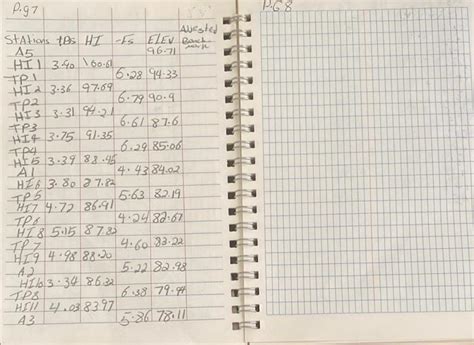 P.g7
Stations +BS HI -FS ELEV Adjusted Bench mark
A5 96.71
HI1 3.90 100.61
TP1 6.28 94.33
HI2 3.36 97.69
TP2 6.79 90.9
HI3 3.31 94.21
TP3 6.61 87.6
HI4 3.75 91.35
TP4 6.29 85.06
HI5 3.39 88.45
A1 4.43 84.02
HI6 3.80 87.82
TP5 5.63 82.19
HI7 4.72 86.91
TP6 4.24 82.67
HI8 5.15 87.82
TP7 4.60 83.22
HI9 4.98 88.20
A2 5.22 82.98
HI10 3.34 86.32
TP8 6.38 79.94
HI11 4.03 83.97
A3 5.86 78.11
P.G8